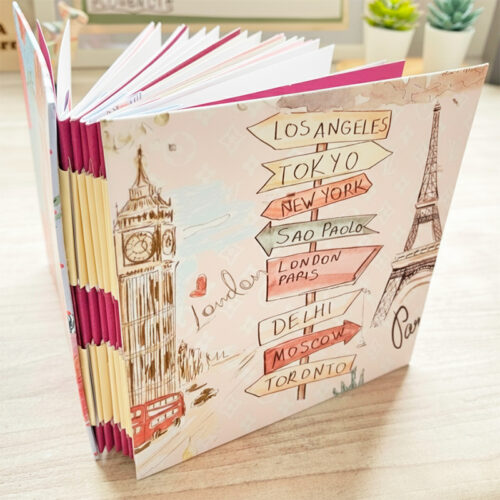 LOS ANGELES
TOKYO
NEW YORK
SAO PAOLO
LONDON
PARIS
London
DELHI
MOSCOW
TORONTO